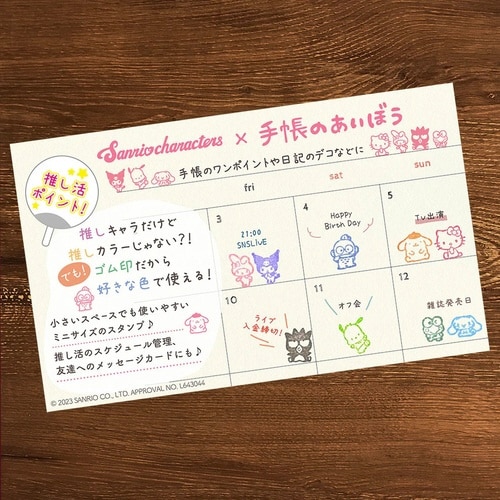 Sanrio characters × 手帳のあいぼう
手帳のワンポイントや日記のデコなどに
推し活
ポイント!
推しキャラだけど
推しカラーじゃない?!
でも! ゴム印だから
好きな色で使える!
小さいスペースでも使いやすい
ミニサイズのスタンプ♪
推し活のスケジュール管理、
友達へのメッセージカードにも♪
fri
sat
sun
3
21:00
SNSLIVE
4
Happy
Birth Day
5
T.V.出演
10
ライブ
入金締切!
11
オフ会
12
雑誌発売日
© 2023 SANRIO CO., LTD. APPROVAL NO. L643044